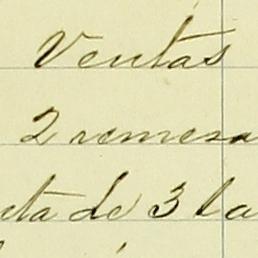 Ventas
2 remesa
cta de 3 la